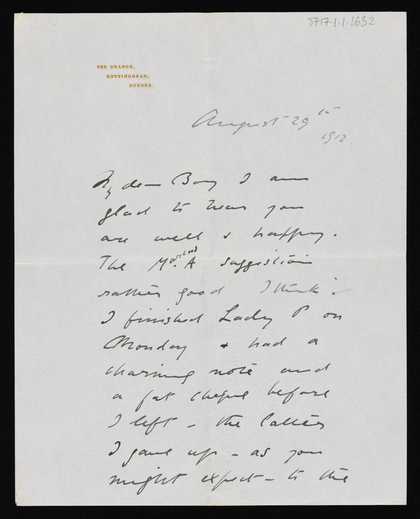 5717.1.1.1632
THE GRANGE,
ROTTINGDEAN,
SUSSEX.
August 29th
1912
My dear Boy I am
glad to hear you
are well & happy.
The Mrs A suggestion
rather good I think –
I finished Lady P on
Monday & had a
charming note and
a fat cheque before
I left – the latter
I gave up – as you
might expect – to the